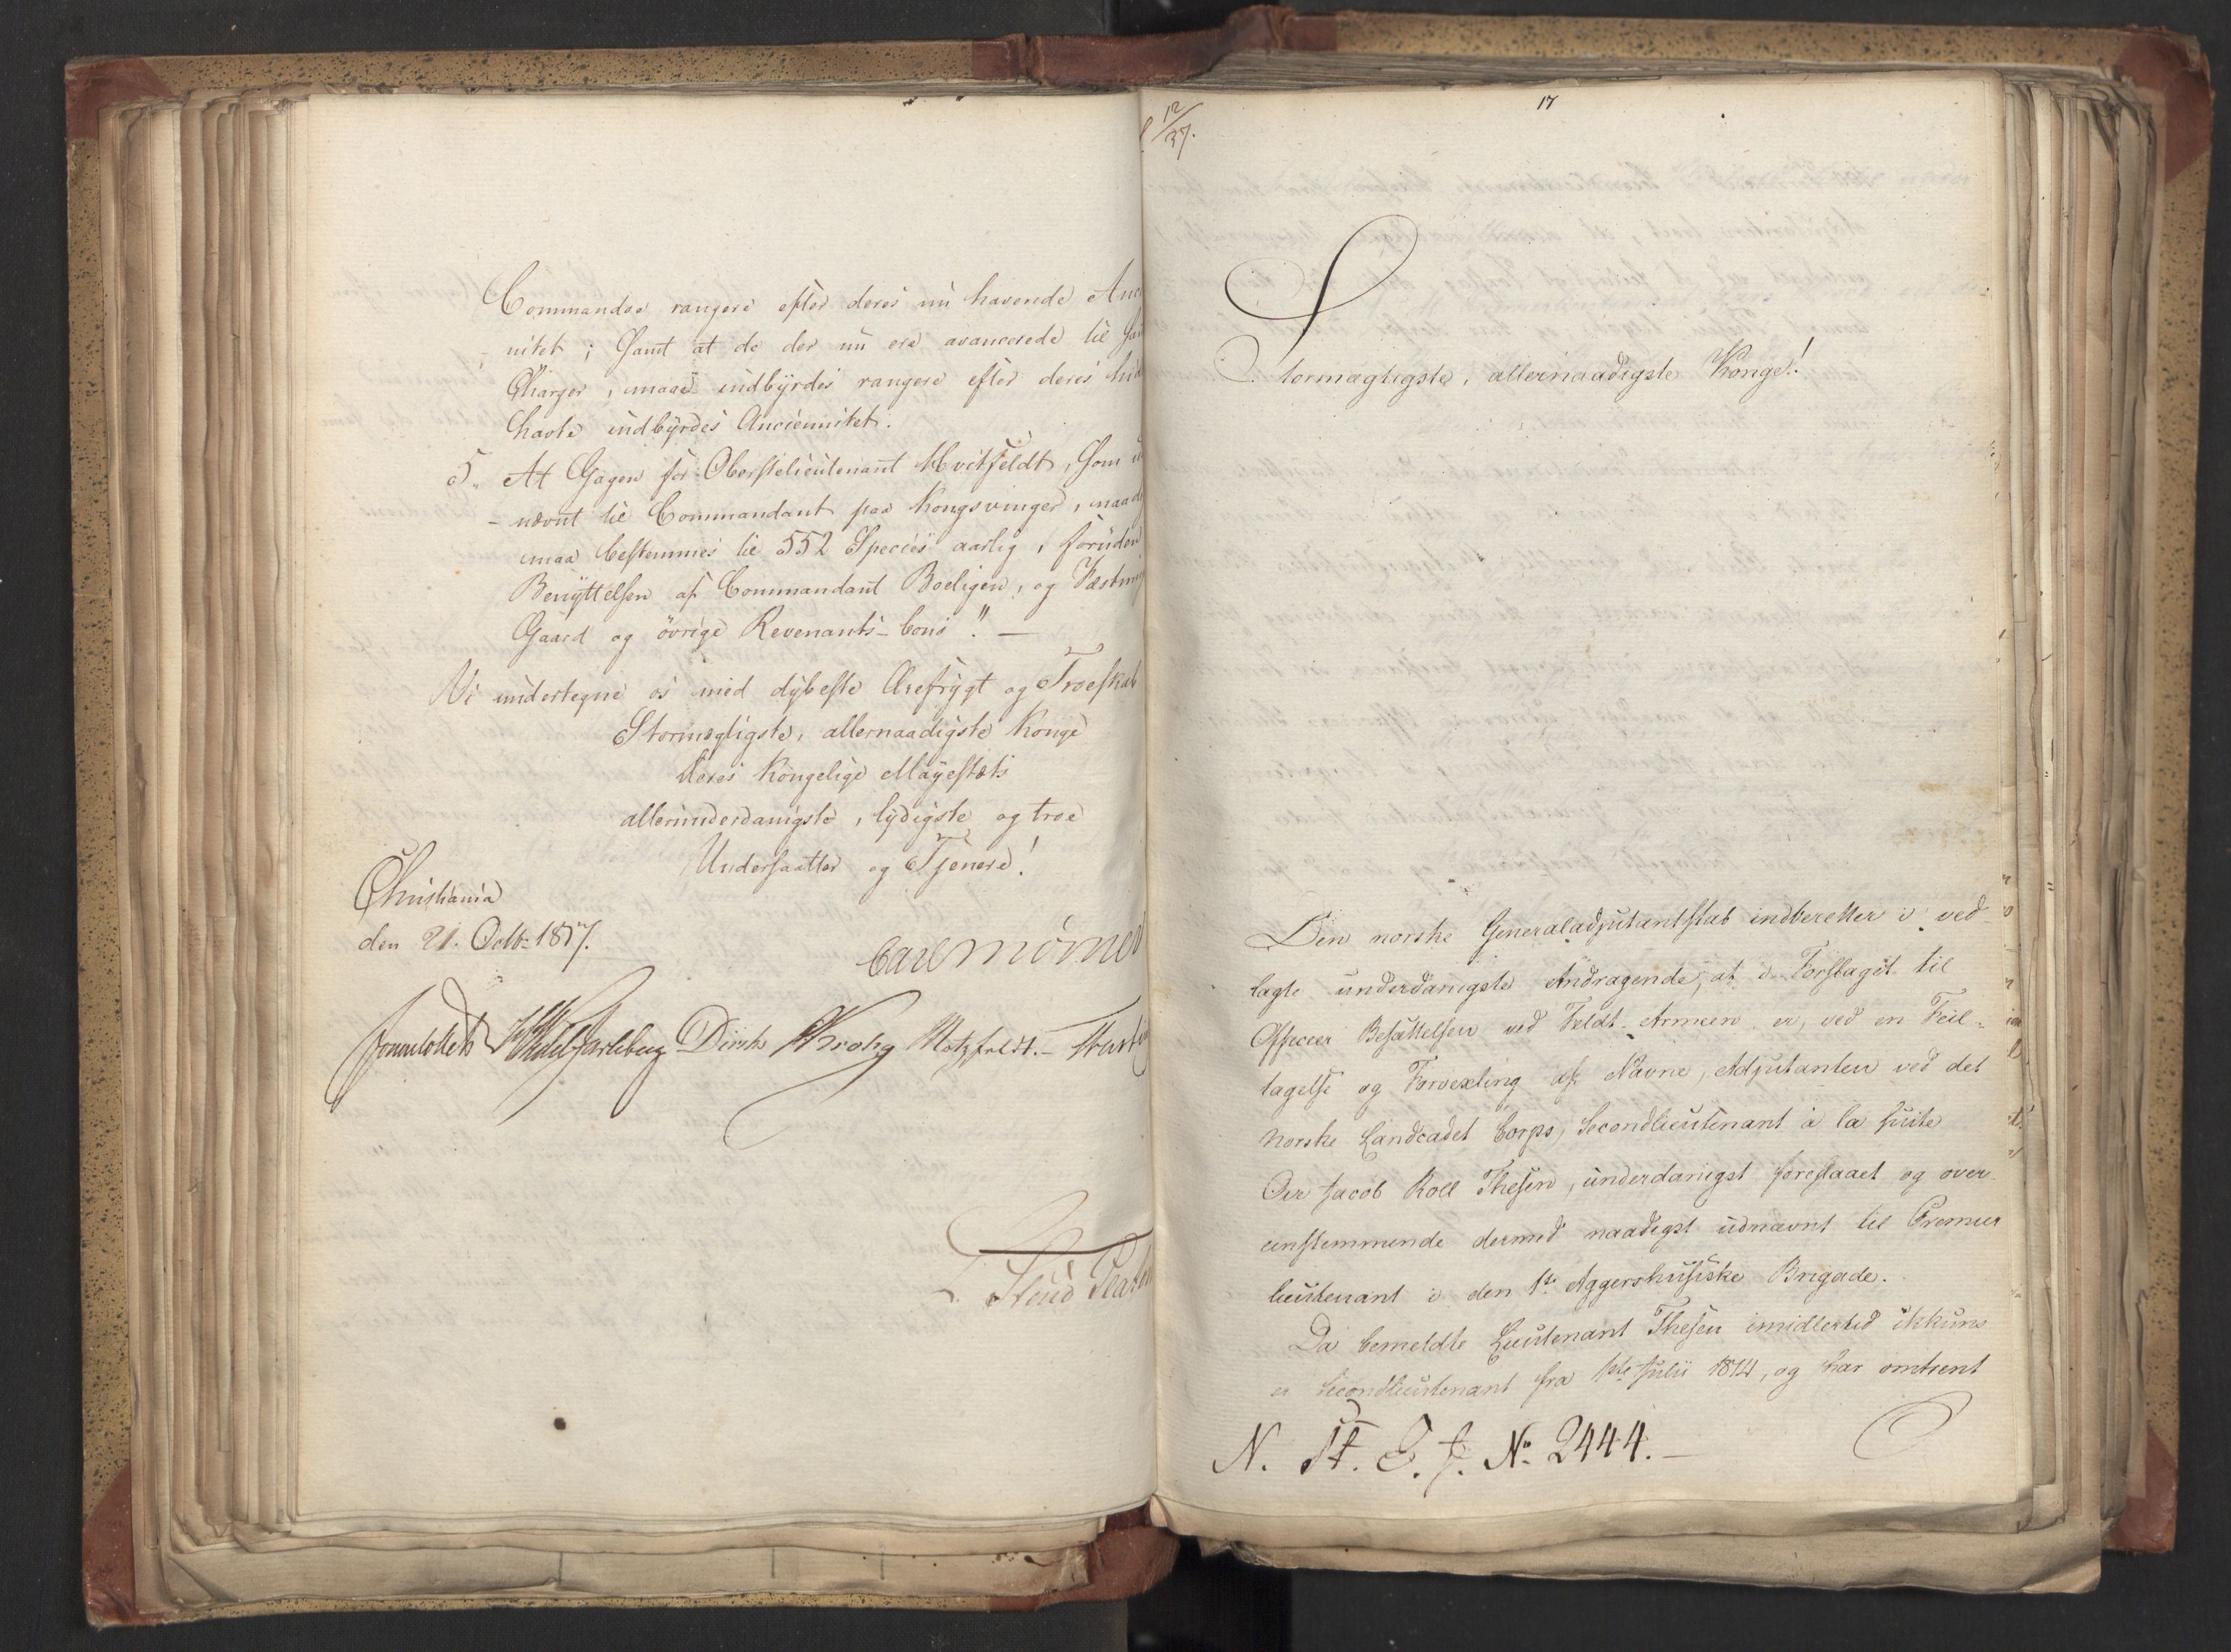 Commandoe rangere efter deres nu havende Anci
nitet; samt at de der nu ere avancerede til
Charger, maae indbyrdes rangere efter deres hid
havte indbyrdes Anciennitet.
5. At Gagen for Oberstelieutenant Hvitfeldt, som u
- nævnt til Commandant paa Kongsvinger, naad
maa bestemmes til 552 Species aarlig, foruden
Benyttelsen af Commandant Boeligen, og Fæstn
Gaard og övrige Revenants-bons". —
Vi undertegne os med dybeste Ærefrygt og Troeskab
Stormægtigste, allernaadigste Konge
Deres Kongelige Mayestæts
allerunderdanigste, lydigste og troe
Undersaatter og Tjenere!
Christiania
den 21. Octb: 1817.
Carl Mörner
Sommerfeldt HWedel Jarlsberg Diriks Krohg Motzfeldt.-
12/37.
17
Stormægtigste, allernaadigste Konge!
Den norske Generaladjutantstab indberetter i ved-
lagte underdanigste Andragende, at i Forslaget til
Officeer Besættelsen ved Feldt-Armeen er, ved en Feil-
tagelse og Forvexling af Navne, Adjutanten ved det
norske Landcadet Corps, Secondlieutenant à la suite
Ove Jacob Roll Thesen, underdanigst foreslaaet og over-
eenstemmende dermed naadigst udnævnt til Premier
lieutenant i den 1ste Aggershusiske Brigade.
Da bemeldte Lieutenant Thesen imidlertid ikkuns
er Secondlieutenant fra 1ste Julii 1814, og har omtrent
N. St. E. J. No 2444.-